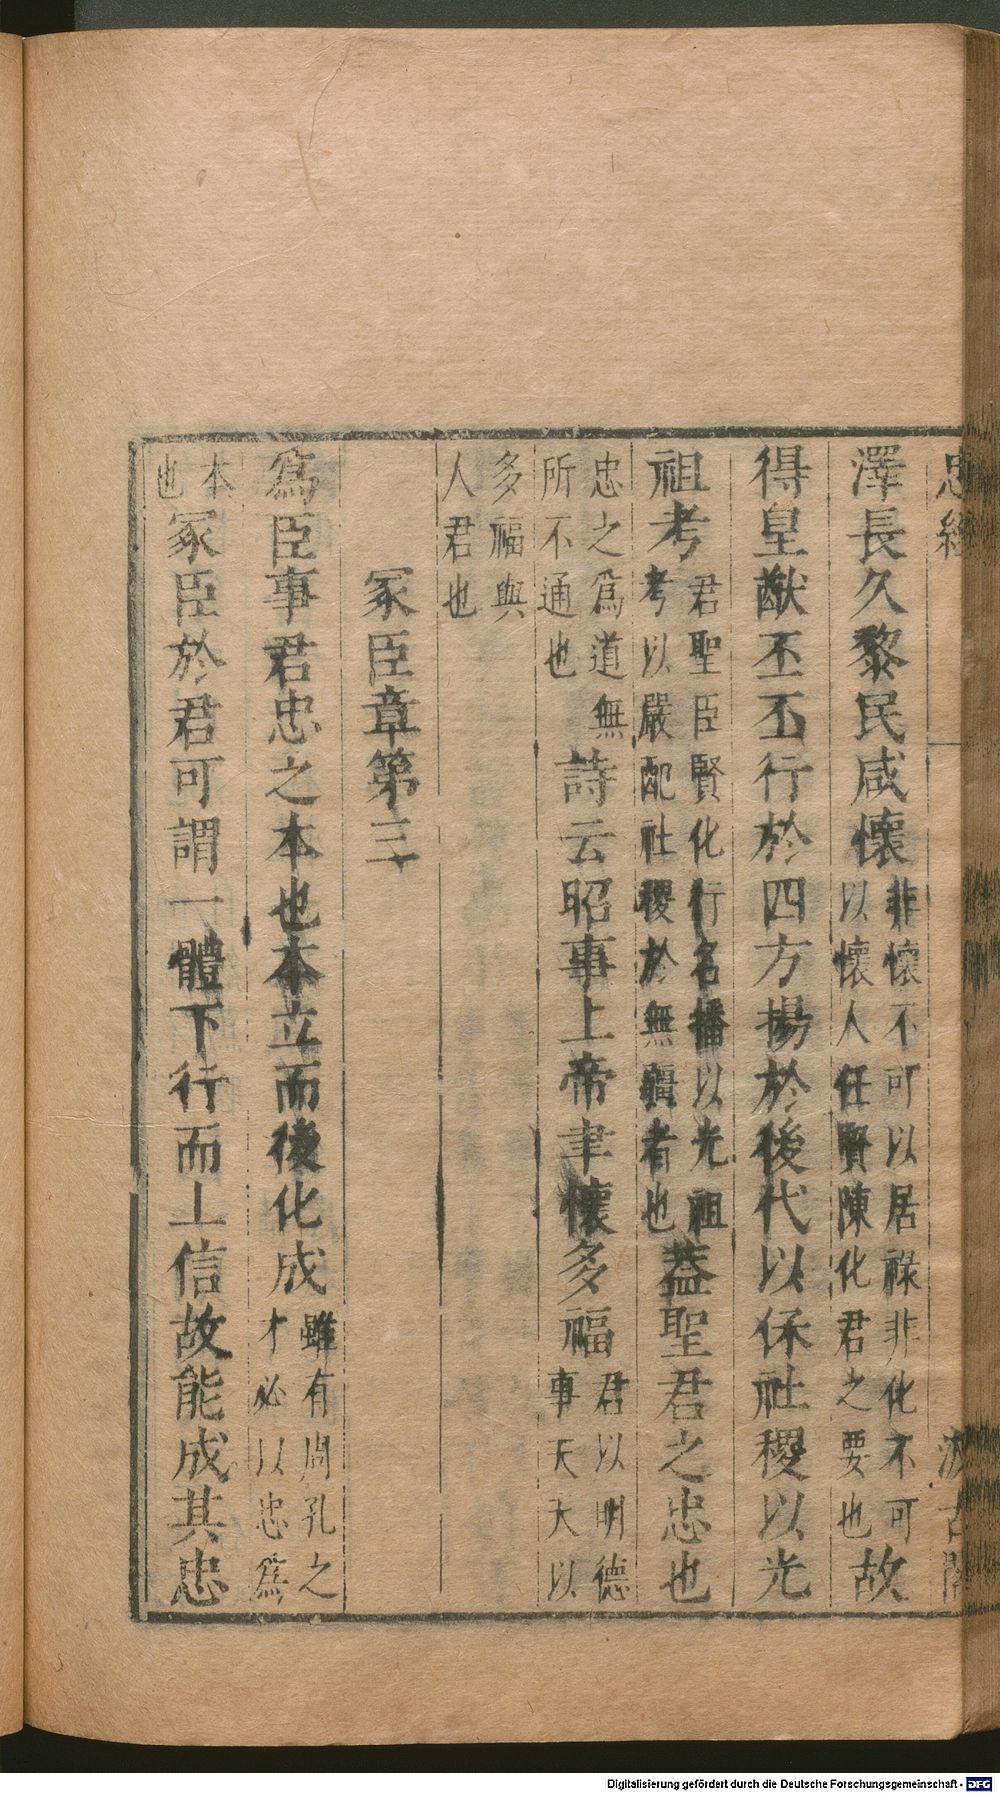 忠經
汲古閣
澤長久黎民咸懷非懷不可以居祿非化不可以懷人任賢陳化君之要也故
得皇猷丕丕行於四方揚於後代以保社稷以光
祖考君聖臣賢化行名播以光祖考以嚴配社稷於無疆者也葢聖君之忠也
忠之爲道無所不通也詩云昭事上帝聿懷多福君以明德事天天以
多福與人君也
冢臣章第三
爲臣事君忠之本也本立而後化成雖有周孔之才必以忠爲
本也冢臣於君可謂一體下行而上信故能成其忠
Digitalisierung gefördert durch die Deutsche Forschungsgemeinschaft - DFG